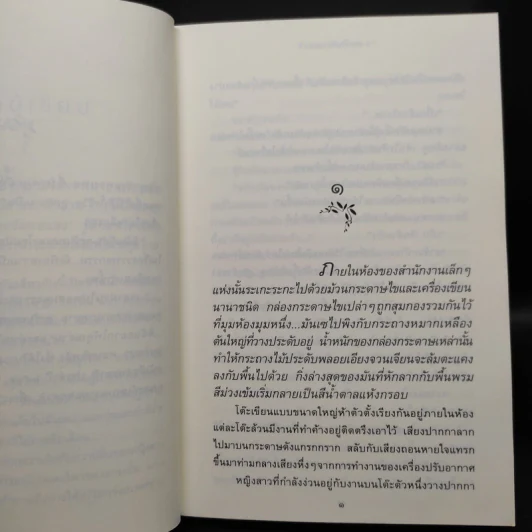 ๑
ภายในห้องของสำนักงานเล็กๆ
แห่งนั้นระเกะระกะไปด้วยม้วนกระดาษไขและเครื่องเขียน
นานาชนิด กล่องกระดาษไขเปล่าๆถูกสุมกองรวมกันไว้
ที่มุมห้องมุมหนึ่ง...มันเซไปพิงกับกระถางหมากเหลือง
ต้นใหญ่ที่วางประดับอยู่ น้ำหนักของกล่องกระดาษเหล่านั้น
ทำให้กระถางไม้ประดับพลอยเอียงจวนเจียนจะล้มตะแคง
ลงกับพื้นไปด้วย กิ่งล่างสุดของมันที่หักลากกับพื้นพรม
สีม่วงเข้มเริ่มกลายเป็นสีน้ำตาลแห้งกรอบ
โต๊ะเขียนแบบขนาดใหญ่ห้าตัวตั้งเรียงกันอยู่ภายในห้อง
แต่ละโต๊ะล้วนมีงานที่ทำค้างอยู่ติดตรึงเอาไว้ เสียงปากกาลาก
ไปมาบนกระดาษดังแกรกกราก สลับกับเสียงถอนหายใจแทรก
ขึ้นมาท่ามกลางเสียงหึ่งๆจากการทำงานของเครื่องปรับอากาศ
หญิงสาวที่กำลังง่วนอยู่กับงานบนโต๊ะตัวหนึ่งวางปากกา
๑